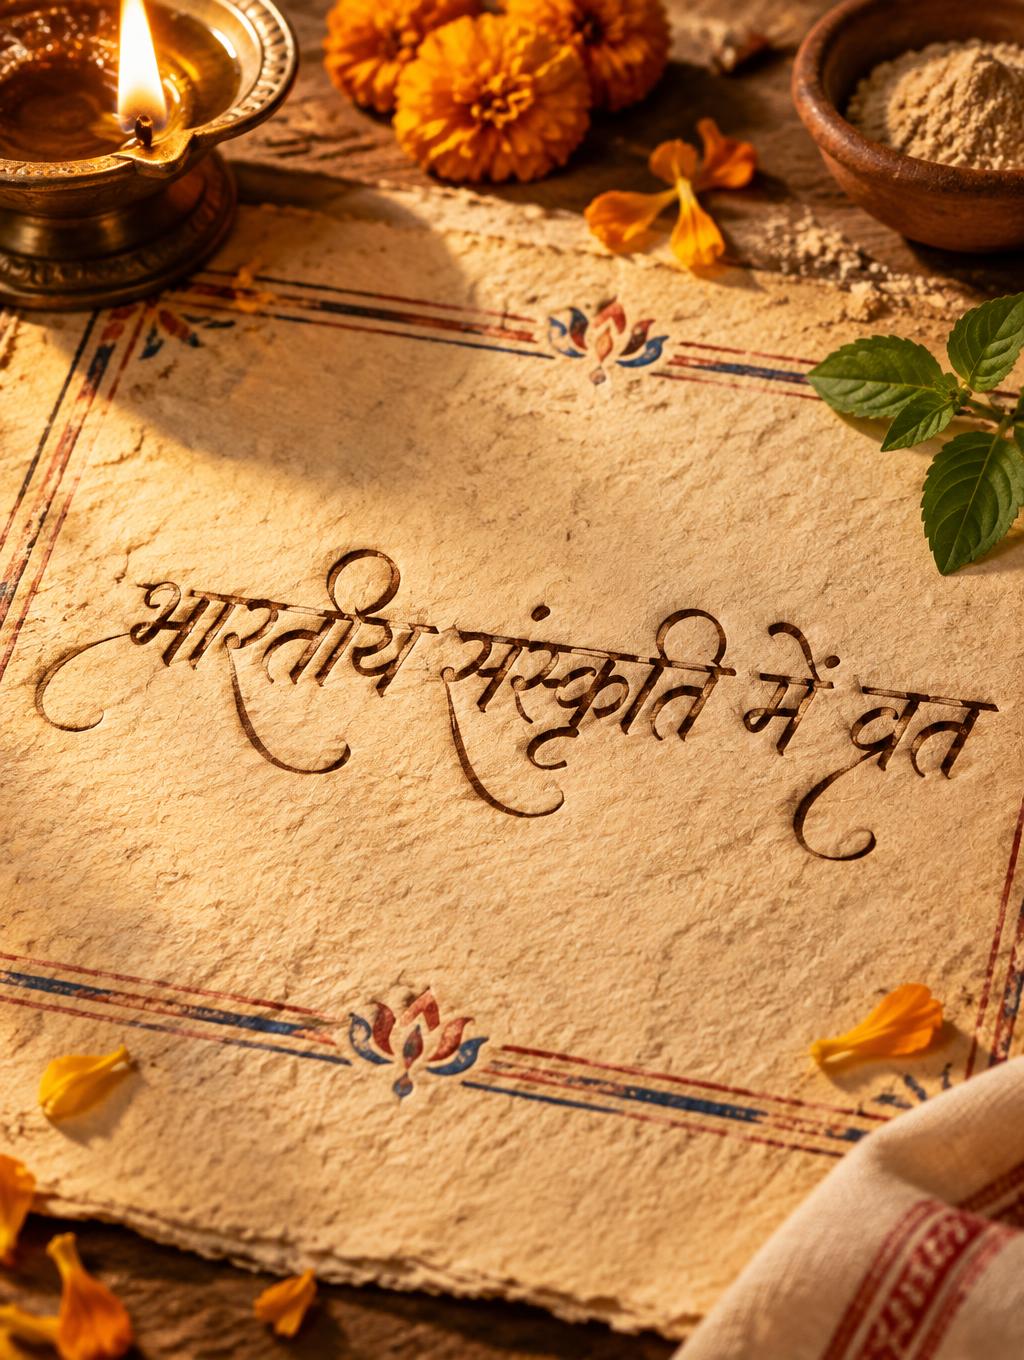 भारतीय संस्कृति में व्रत